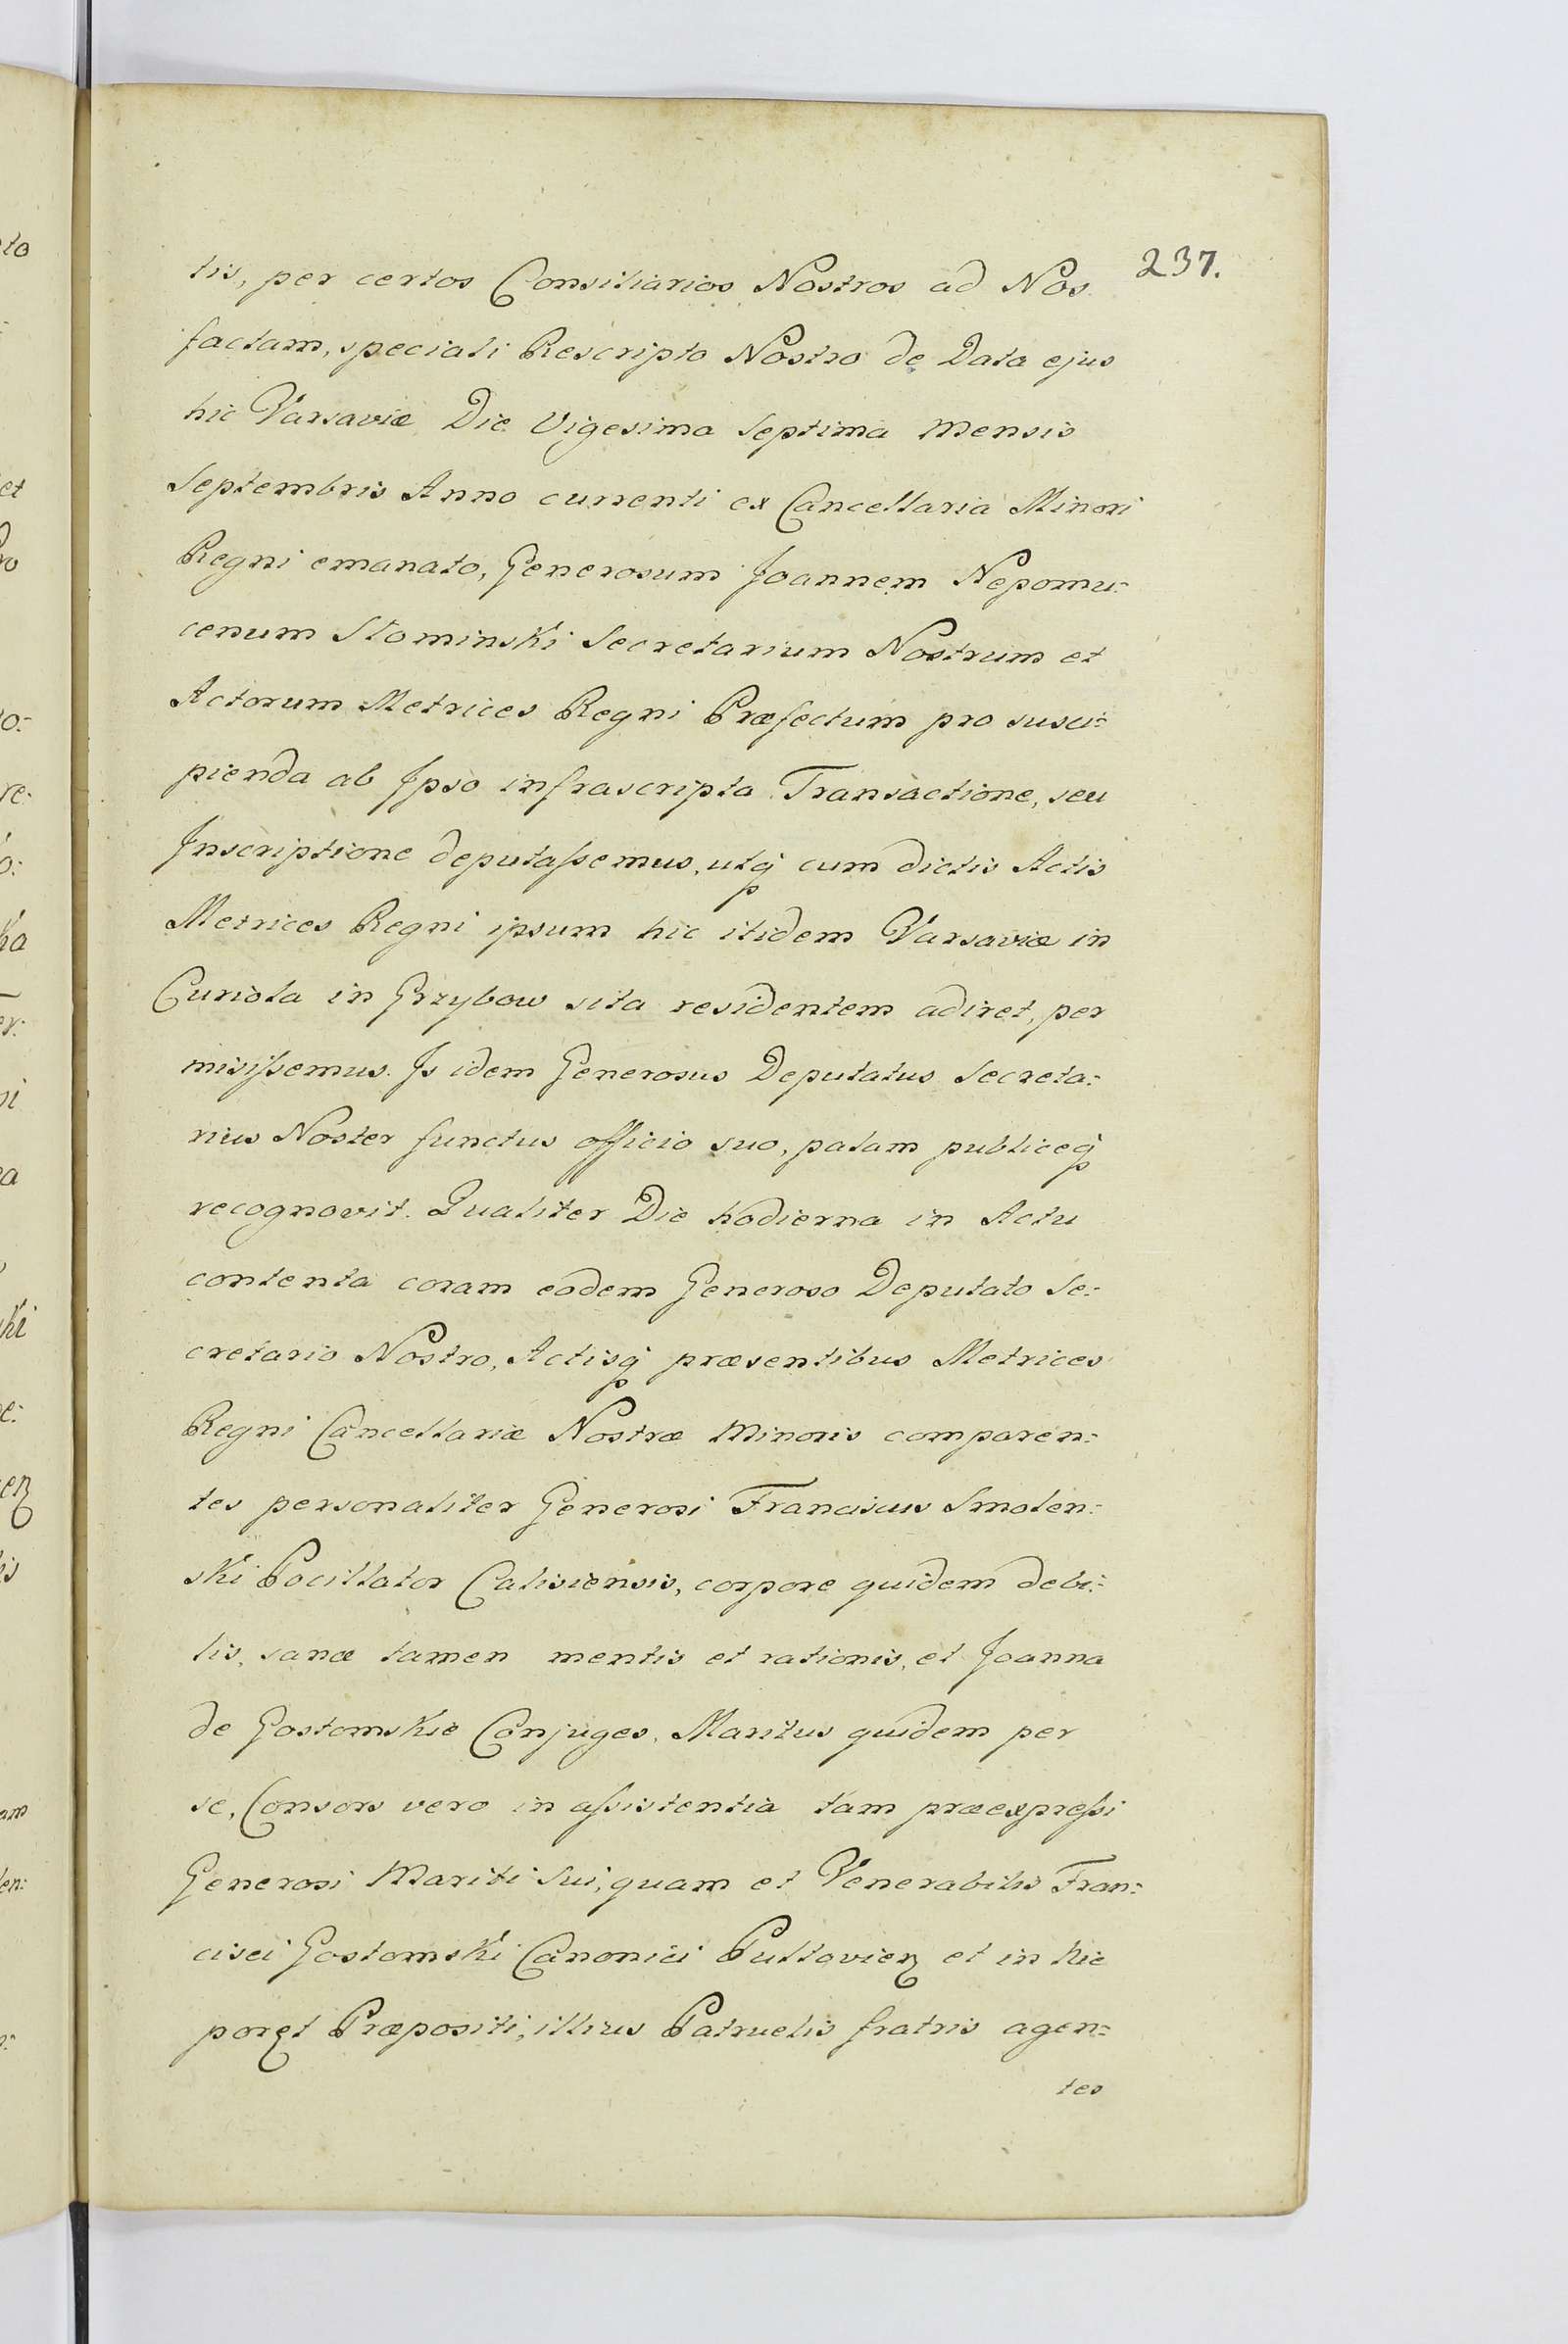 237.
tis, per certos Consiliarios Nostros ad Nos
factam, speciali Rescripto Nostro de Data ejus
hic Varsaviæ Die Vigesima Septima Mensis
Septembris Anno currenti ex Cancellaria Minori
Regni emanato, Generosum Joannem Nepomu:
cenum Słominski Secretarium Nostrum et
Actorum Metrices Regni Præfectum pro susci:
pienda ab Ipso infrascripta Transactione, seu
Inscriptione deputassemus, utq̃ cum dictis Actis
Metrices Regni ipsum hic itidem Varsaviæ in
Curiola in Grzybow sita residentem adiret, per
misissemus. Is idem Generosus Deputatus Secreta:
rius Noster functus officio suo, palam publiceq̃
recognovit. Qualiter Die hodierna in Actu
contenta coram eodem Generoso Deputato Se:
cretario Nostro, Actisq̃ præsentibus Metrices
Regni Cancellariæ Nostræ Minoris comparen:
tes personaliter Generosi Franciscus Smolen:
ski Pocillator Calisiensis, corpore quidem debi:
lis, sanæ tamen mentis et rationis, et Joanna
de Gostomskie Conjuges, Maritus quidem per
se, Consors vero in assistentia tam præexpressi
Generosi Mariti Sui, quam et Venerabilis Fran:
cisci Gostomski Canonici Pultovien et in hic
Præpositi, illius Patruelis fratris agen:
tes
to
et
ro
o:
re:
o:
ka
er:
ni
a
ki
e:
en
is
am
len: